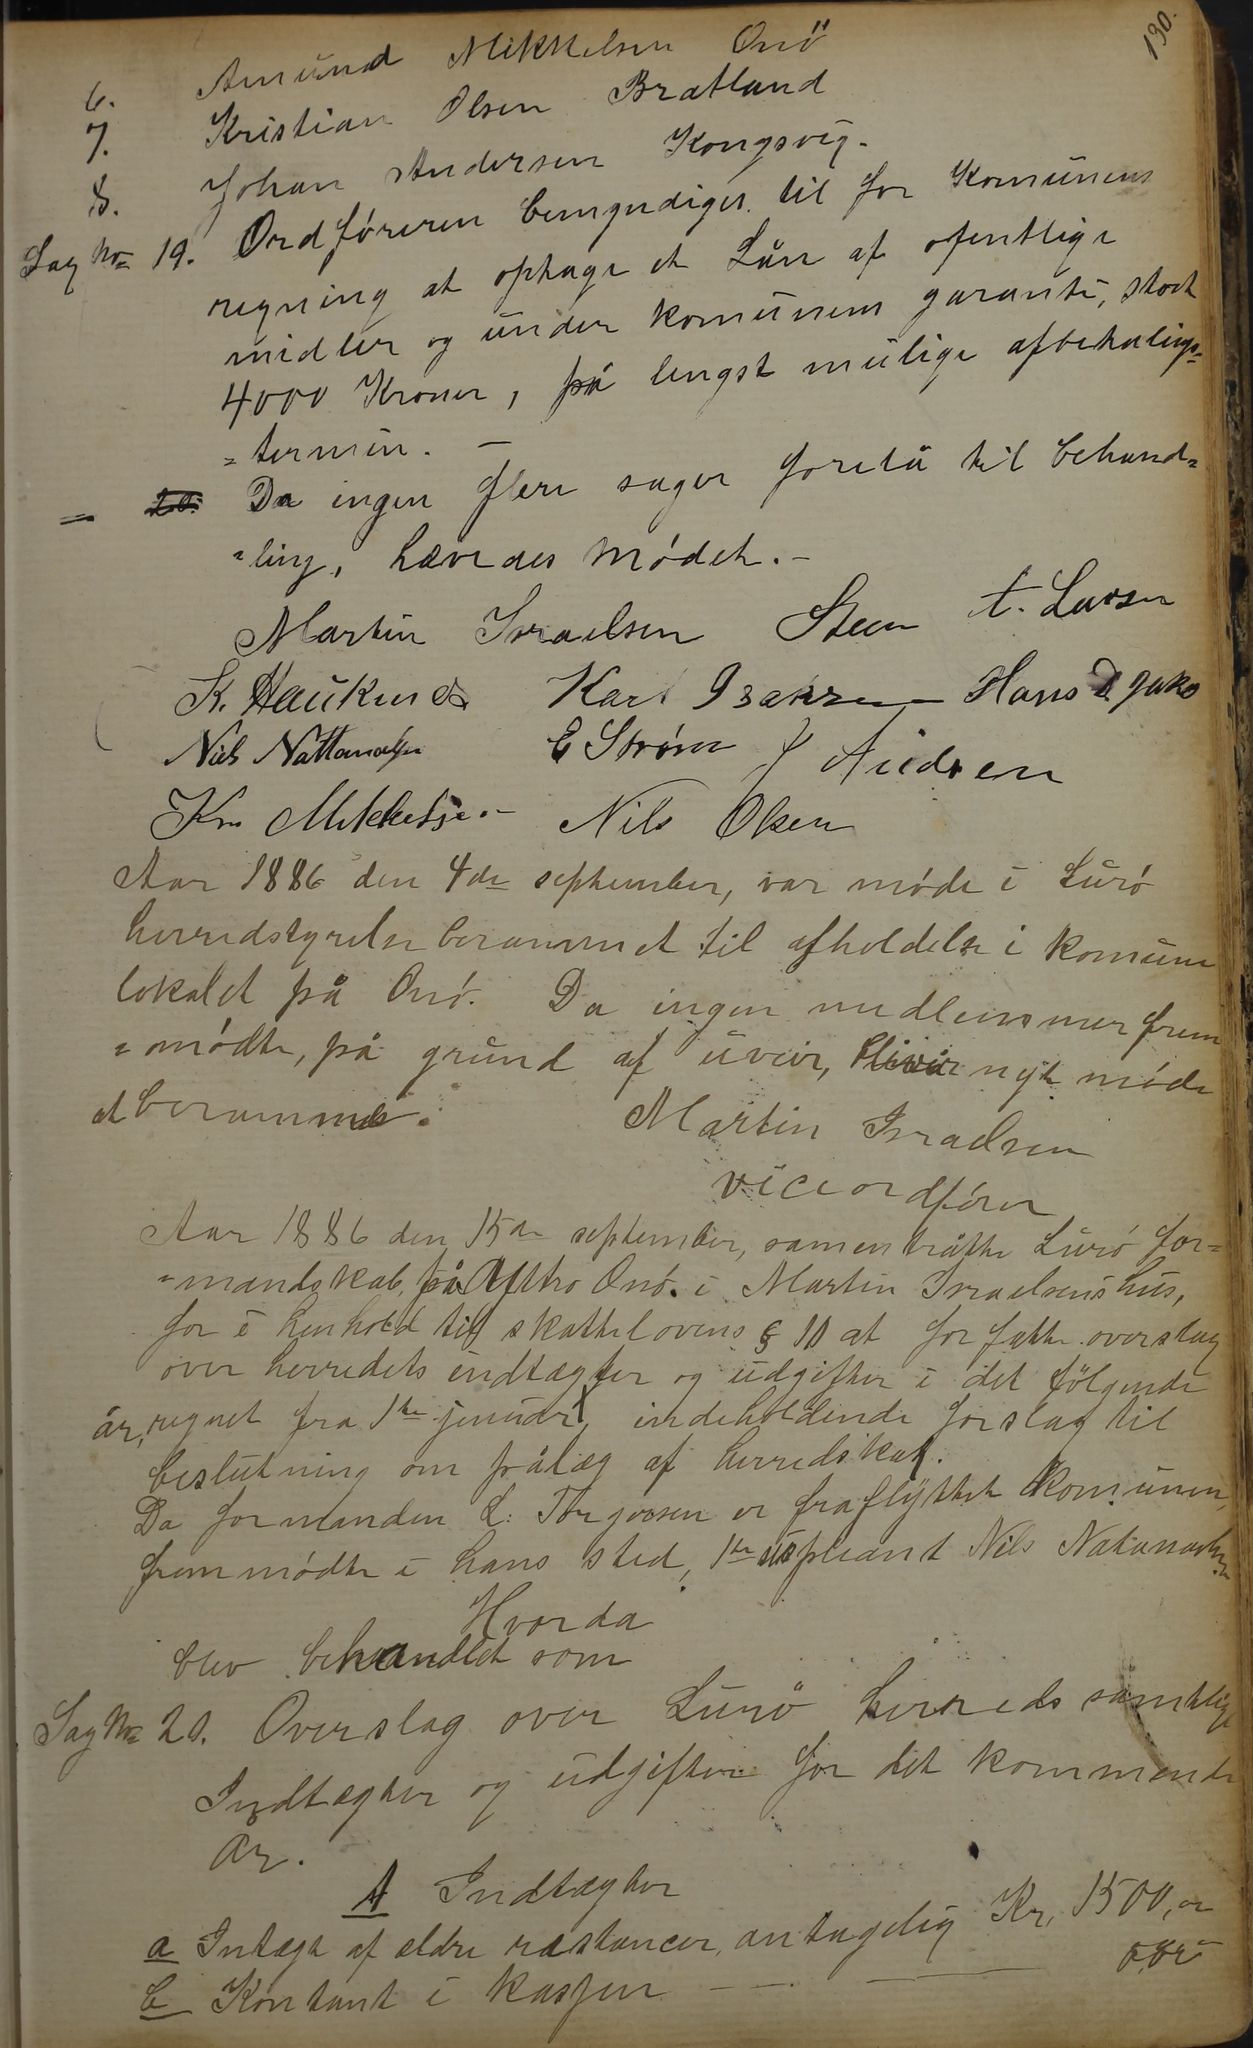 130.
6. Amund Mikkelsen Onö
7. Kristian Olsen Bratland
8. Johan Andersen Kongsvig.
Sag No 19. Ordføreren bemyndiges til for Komunens
regning at optage et Lån af ofentlige
midler og under komunens garanti, stort
4000 Kroner, på lengst mulige afbetalings=
=termin. —
= 20. Da ingen flere sager forelå til behand=
=ling, hævedes mødet. —
Martin Israelsen Steen A. Larsen
K. Hauknes Karl Isaksen Hans D Jako
Niels Nattanalsen E Strøm J Andsen
Kr. Mikkelsen Nils Olsen
Aar 1886 den 4de september, var møde i Lurö
herredstyrelse berammet til afholdelse i komune
lokalet på Onö. Da ingen medlemmer frem
=mødte, på grund af uveir, bliver nyt møde
at beramme.
Martin Israelsen
viceordfører
Aar 1886 den 15de september, samentrådte Lurö for=
=mandskab, på Onö i Martin Israelsens hus,
for i henhold til skattelovens § 10 at forfatte overslag
over herredets indtægter og udgifter i det følgende
år, regnet fra 1ste januar, indeholdende forslag til
beslutning om pålæg af herredskat.
Da formanden L. Torgersen er fraflyttet komunen,
fremmødte i hans sted, 1ste supleant Nils Natanaelsen
Hvorda
blev behandlet som
Sag No 20. Overslag over Lurö herreds samtlige
Indtægter og udgifter for det kommende
År.
A Indtægter
a Intægt af eldre restancer, antagelig Kr, 1500, "
b Kontant i kassen — —